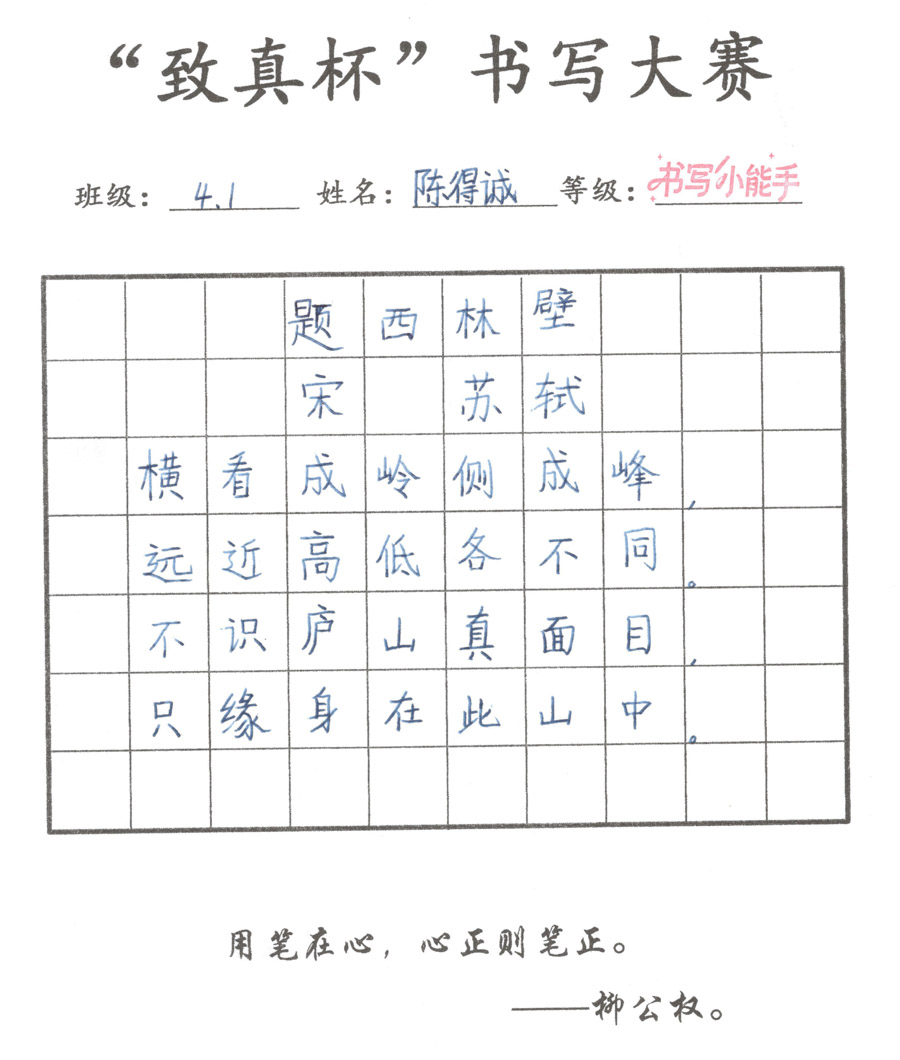 “致真杯”书写大赛
班级：4.1 姓名：陈得诚 等级：书写小能手
题西林壁
宋 苏轼
横看成岭侧成峰，
远近高低各不同。
不识庐山真面目，
只缘身在此山中。
用笔在心，心正则笔正。
——柳公权。